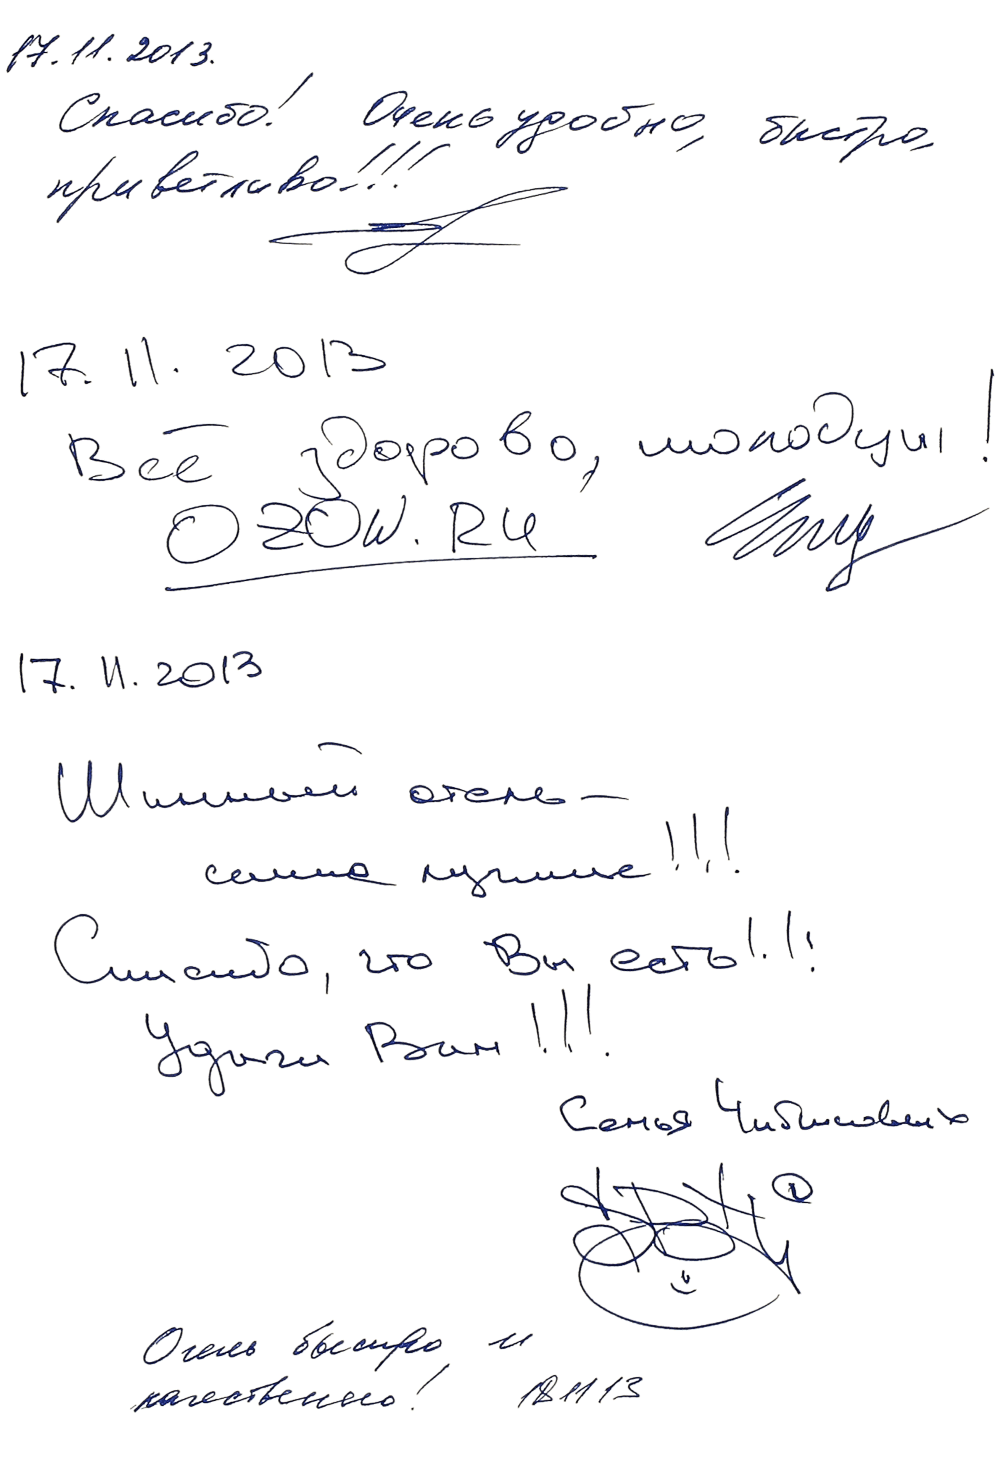 17.11.2013.
Спасибо! Очень удобно, быстро,
приветливо!!!
17.11.2013
Всё здорово, молодцы!
OZON.RU
17.11.2013
Шинный отель –
самые лучшие!!!
Спасибо, что Вы есть!!!
Удачи Вам!!!
Семья
Очень быстро и
качественно! 18 11 13